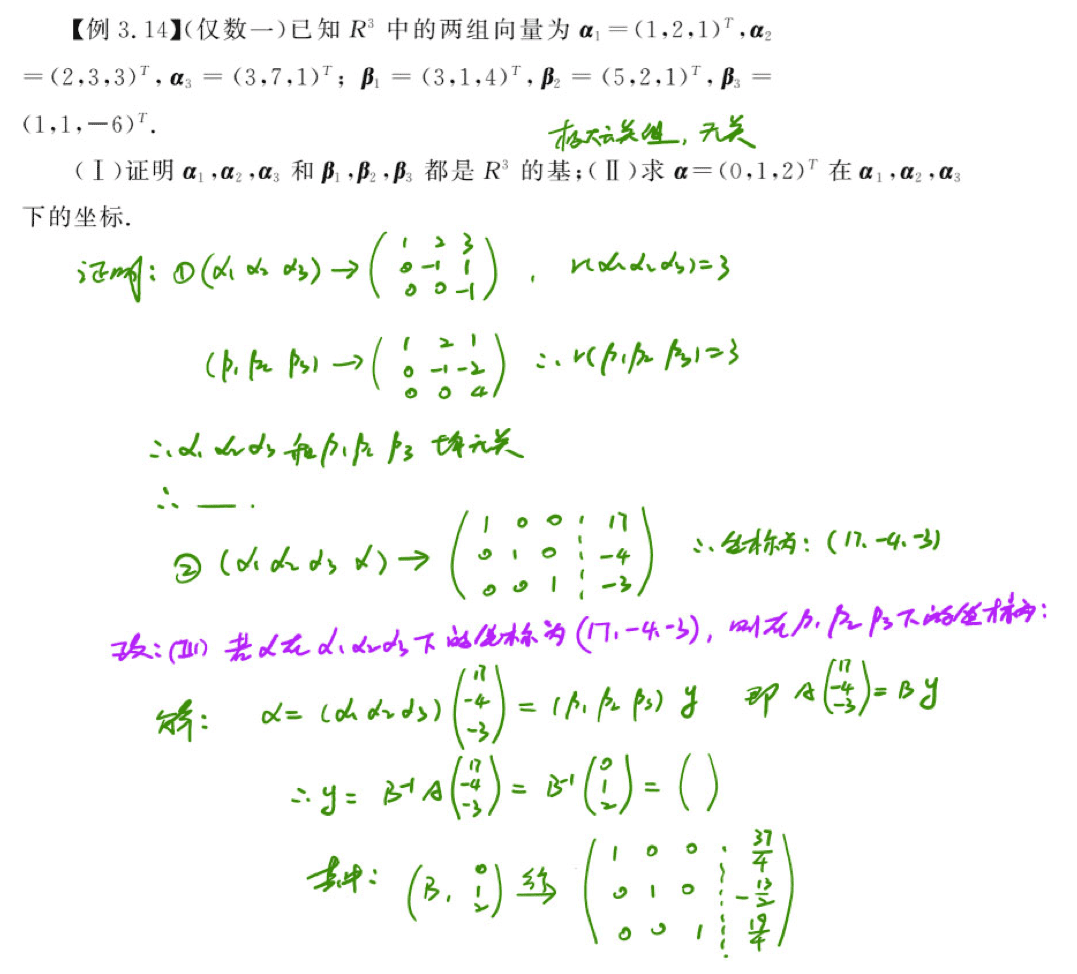 【例 3.14】(仅数一)已知 R³ 中的两组向量为 α₁=(1,2,1)ᵀ,α₂
=(2,3,3)ᵀ,α₃=(3,7,1)ᵀ; β₁=(3,1,4)ᵀ,β₂=(5,2,1)ᵀ,β₃=
(1,1,−6)ᵀ.
极大无关组, 无关
(Ⅰ)证明 α₁,α₂,α₃ 和 β₁,β₂,β₃ 都是 R³ 的基;(Ⅱ)求 α=(0,1,2)ᵀ 在 α₁,α₂,α₃
下的坐标.
证明: ①(α₁ α₂ α₃) → (1 2 3; 0 -1 1; 0 0 -1), r(α₁α₂α₃)=3
(β₁ β₂ β₃) → (1 2 1; 0 -1 -2; 0 0 4) ∴ r(β₁β₂ β₃)=3
∴ α₁ α₂ α₃ 和 β₁ β₂ β₃ 均无关
∴ — .
② (α₁ α₂ α₃ α) → (1 0 0 ⋮ 17; 0 1 0 ⋮ -4; 0 0 1 ⋮ -3) ∴坐标为: (17, -4, -3)
改:(Ⅲ) 若α在 α₁ α₂ α₃ 下的坐标为 (17, -4, -3), 则在 β₁ β₂ β₃ 下的坐标为:
解: α = (α₁ α₂ α₃)(17; -4; -3) = (β₁ β₂ β₃) y 即 A(17; -4; -3) = B y
∴ y = B⁻¹ A(17; -4; -3) = B⁻¹(0; 1; 2) = ( )
其中: (B, 0; 1; 2) → (1 0 0 ⋮ 37/4; 0 1 0 ⋮ -13/2; 0 0 1 ⋮ 19/4)